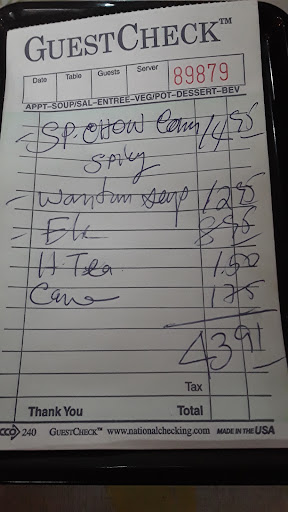 GUESTCHECK™
Date Table Guests Server 89879
APPT-SOUP/SAL-ENTREE-VEG/POT-DESSERT-BEV
SP. CHOW 14 95
Spiky
Wantun soup 12 95
EK 8 95
H. Tea 1.50
Cane 1 75
43 91
Tax
Thank You Total
CCO 240 GUESTCHECK™ www.nationalchecking.com MADE IN THE USA